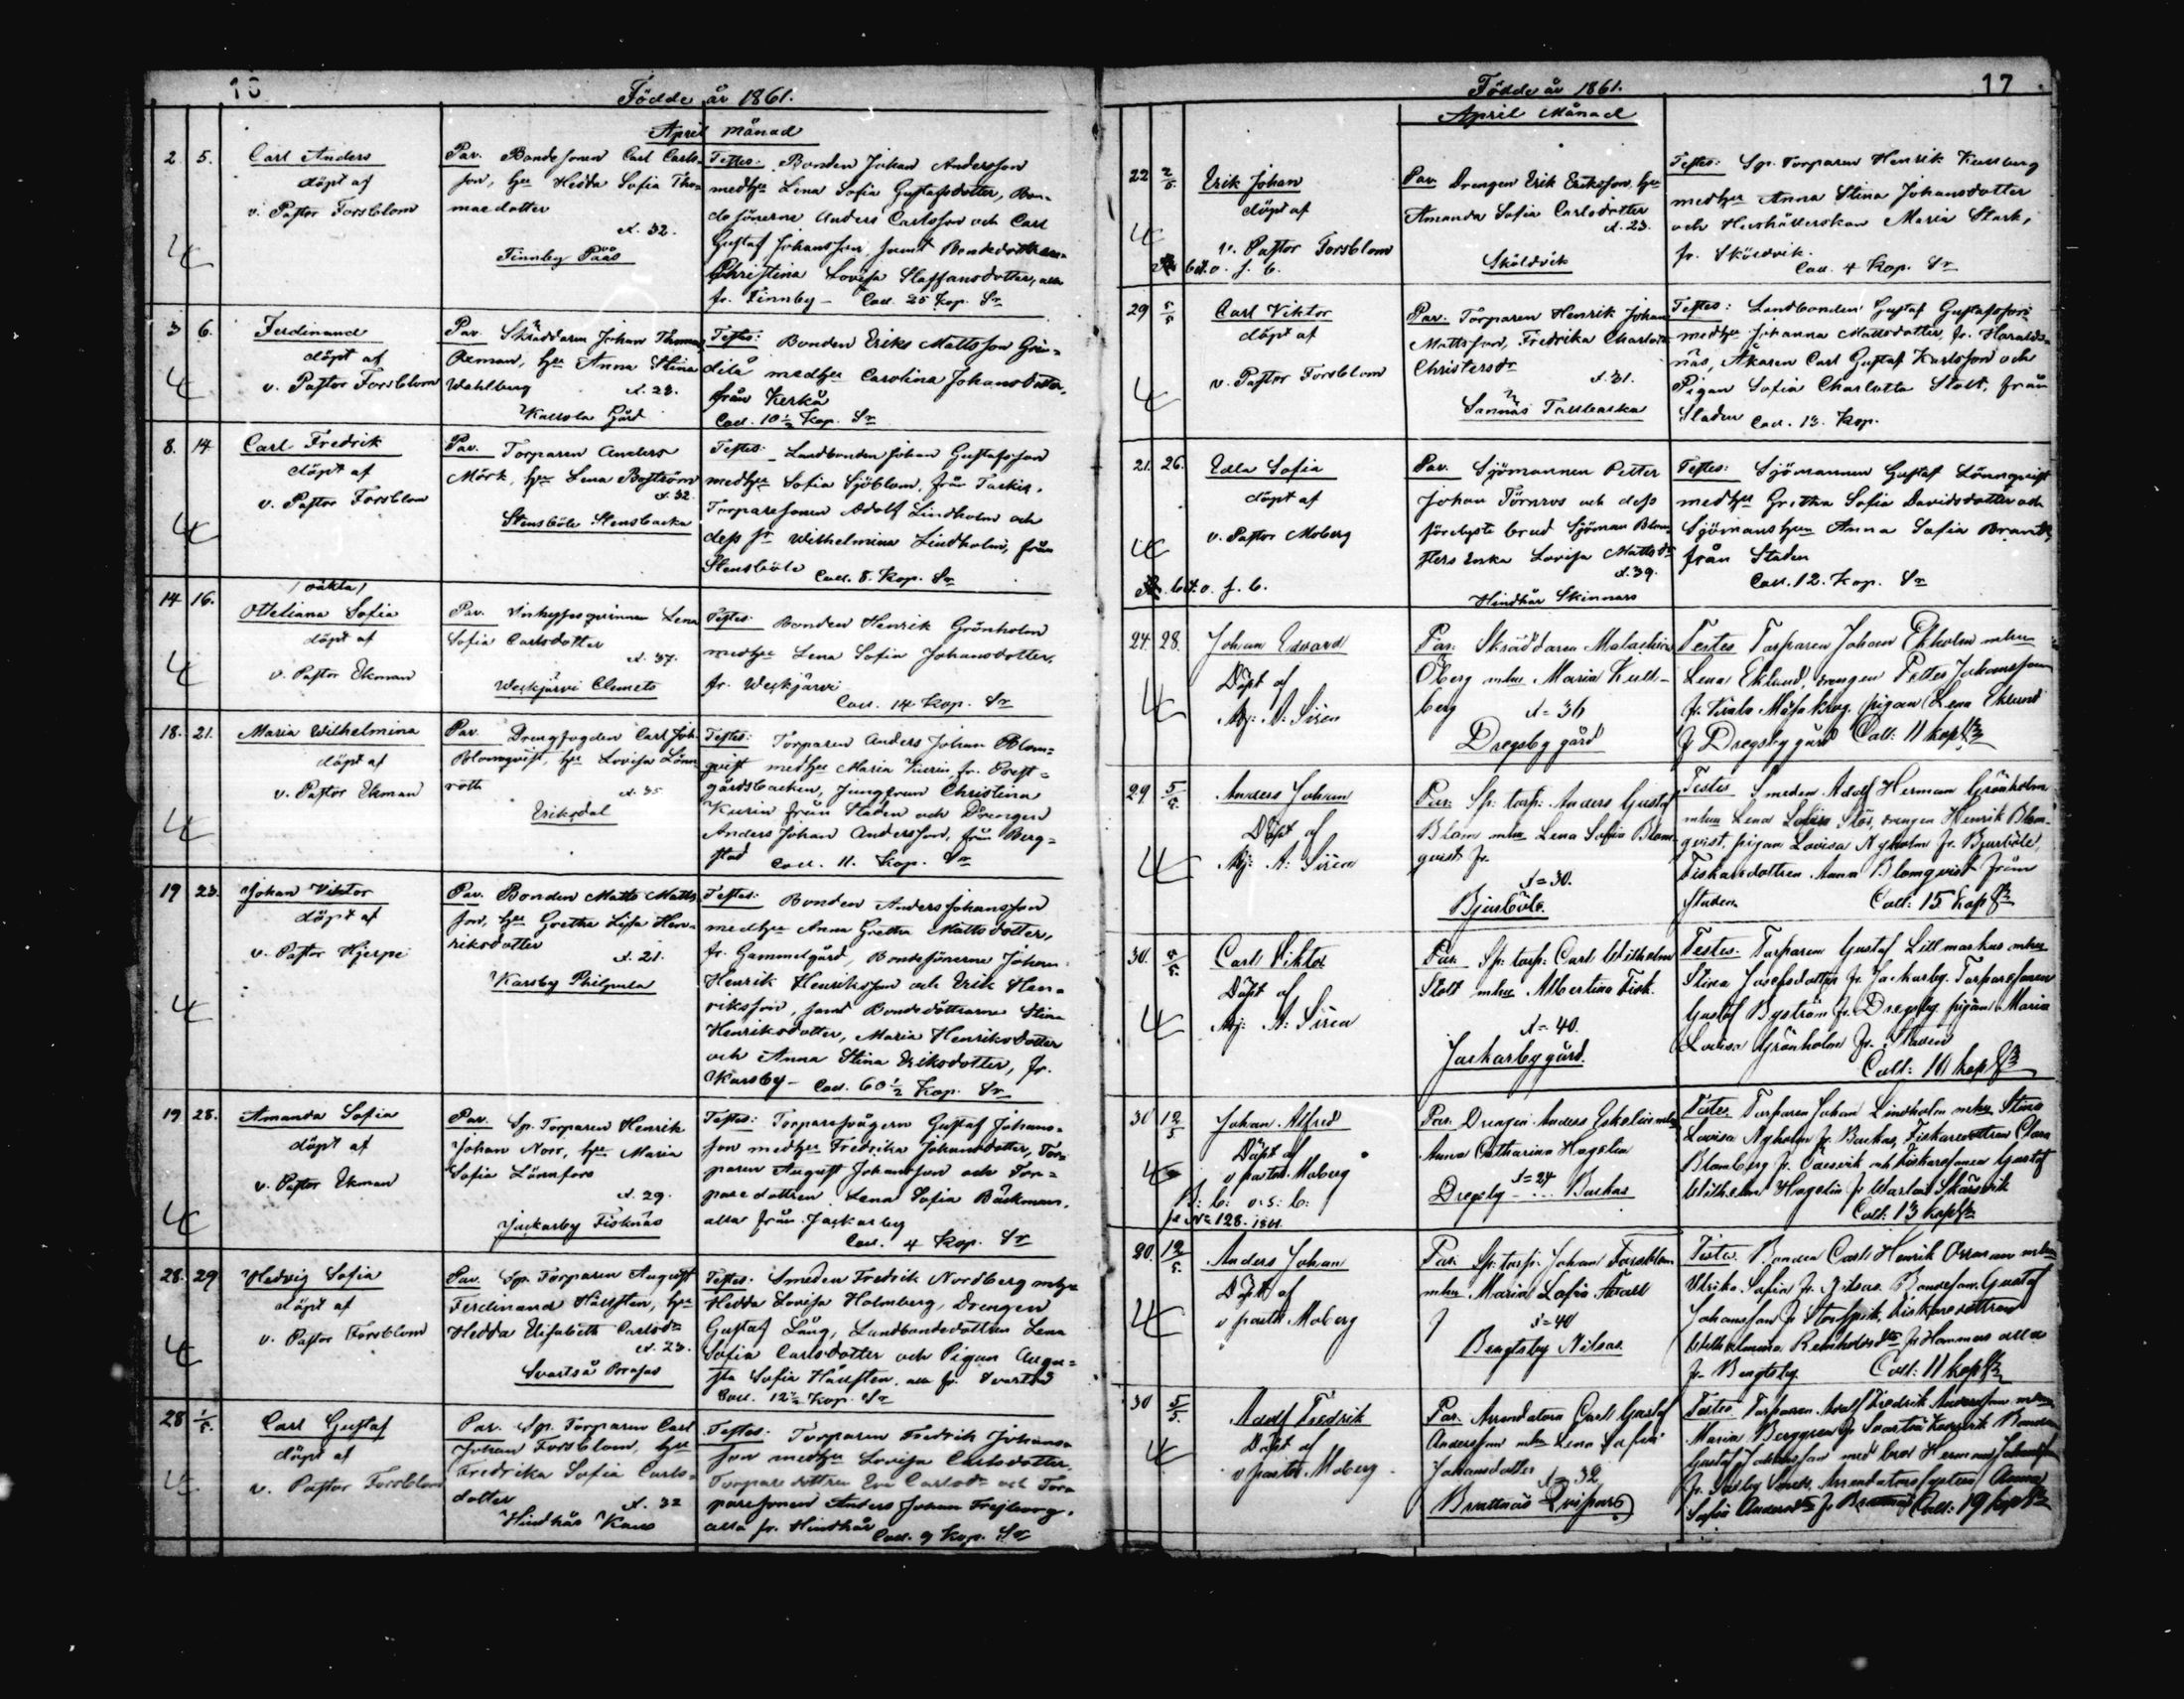 Födde år 1861.
April Månad
2. 5. Carl Anders
döpt af
v. Pastor Forsblom
Par. Bondesonen Carl Carls-
son, hu Hedda Sofia Tho-
masdotter
ä. 32.
Finnby Påås
Testes: Bonden Johan Andersson
med hu Lena Sofia Gustafsdotter, Bon-
desönerne Anders Carlsson och Carl
Gustaf Johansson, samt Bondedottren
Christina Lovisa Staffansdotter, alla
fr. Finnby - Coll. 25 Kop. Sr
3 6. Ferdinand
döpt af
v. Pastor Forsblom
Par. Skräddaren Johan Thomas
Öhman, hu Anna Stina
Wahlberg ä. 28.
Kullola Gård
Testes: Bonden Eriks Mattsson
med hu Carolina Johansdotter,
från Kerkå
Coll. 10 1/2 Kop. Sr
8. 14 Carl Fredrik
döpt af
v. Pastor Forsblom
Par. Torparen Anders
Mörk, hu Lena Boström
ä. 32.
Stensböle Stensbacka
Testes: Landbonden Johan Gustafsson
med hu Sofia Sjöblom, från Tarkis,
Torparesonen Adolf Lindholm och
dess sr Wilhelmina Lindholm, från
Stensböle Coll. 8. Kop. Sr
/oäkta/
14 16. Otteliana Sofia
döpt af
v. Pastor Ekman
Par. Inhysesqvinnan Lena
Sofia Carlsdotter
ä. 37.
Weckjärvi Clemets
Testes: Bonden Henrik Grönholm
med hu Lena Sofia Johansdotter,
fr. Weckjärvi
Coll. 14 Kop. Sr
18. 21. Maria Wilhelmina
döpt af
v. Pastor Ekman
Par. Drengfogden Carl Joh.
Blomqvist, hu Lovisa Lönn-
roth
ä. 35
Eriksdal
Testes: Torparen Anders Johan Blom-
qvist med hu Maria Kurin, fr. Prest-
gårdsbacken, Jungfrun Christina
Kurin från Staden och Drengen
Anders Johan Andersson, från Berg-
stad Coll. 11. Kop. Sr
19 23. Johan Viktor
döpt af
v. Pastor Hjerpe
Par. Bonden Matts Matts-
son, hu Gretha Lisa Hen-
riksdotter
ä. 21.
Karsby Philpula
Testes: Bonden Anders Johansson
med hu Anna Gretha Mattsdotter,
fr. Gammelgård, Bondesönerne Johan
Henrik Henriksson och Erik Hen-
riksson, samt Bondedöttrarne Stina
Henriksdotter, Maria Henriksdotter
och Anna Stina Eriksdotter, fr.
Karsby - Coll. 60 1/2 Kop. Sr
19 28. Amanda Sofia
döpt af
v. Pastor Ekman
Par. Sp. Torparen Henrik
Johan Norr, hu Maria
Sofia Lönnfors
ä. 29.
Jackarby Fisknäs
Testes: Torparesvågern Gustaf Johans-
son med hu Fredrika Johansdotter, Tor-
paren August Johansson och Tor-
paredottren Lena Sofia Bäckman,
alla från Jackarby
Coll. 4 Kop. Sr
28. 29 Hedvig Sofia
döpt af
v. Pastor Forsblom
Par. Sp. Torparen August
Ferdinand Hällsten, hu
Hedda Elisabeth Carlsdr
ä. 23.
Svartså Brasas
Testes: Smeden Fredrik Nordberg m hu
Hedda Lovisa Holmberg, Drengen
Gustaf Lång, Landbondedottren Lena
Sofia Carlsdotter och Pigan Augu-
sta Sofia Hällsten, alla fr. Svartså
Coll. 12 1/2 Kop. Sr
28 1/5. Carl Gustaf
döpt af
v. Pastor Forsblom
Par. Sp. Torparen Carl
Johan Forsblom, hu
Fredrika Sofia Carls-
dotter ä. 32
Hindhår Kass
Testes: Torparen Fredrik Johans-
son med hu Lovisa Carlsdotter,
Torparedottren Eva Carlsdr och Tor-
paresonen Anders Johan Frejborg,
alla fr. Hindhår Coll. 9 Kop. Sr
17
Födde år 1861.
April Månad
22 2/5 Erik Johan
döpt af
v. Pastor Forsblom
bet. o. s. b.
Par. Drengen Erik Eriksson, hu
Amanda Sofia Carlsdotter
ä. 23.
Sköldvik
Testes: Sp. Torparen Henrik Kullberg
med hu Anna Stina Johansdotter
och Hushållerskan Maria Stark,
fr. Sköldvik.
Coll. 4 Kop. Sr
29 5/5 Carl Viktor
döpt af
v. Pastor Forsblom
Par. Torparen Henrik Johan
Mattsson, Fredrika Charlotta
Christersdr
ä. 31.
Sannäs Tallbacka
Testes: Landbonden Gustaf Gustafsson
med hu Johanna Mattsdotter, fr. Haralds-
näs, Åkaren Carl Gustaf Karlsson och
Pigan Sofia Charlotta Stolt, från
Staden Coll. 13. Kop.
21. 26. Edla Sofia
döpt af
v. Pastor Moberg
bet. o. s. b.
Par. Sjömannen Petter
Johan Törnros och dess
förelyste brud Sjöman Blom-
sters Enka Lovisa Mattsdr
ä. 39.
Hindhår Skinnars
Testes: Sjömannen Gustaf Lönnqvist
med hu Gretha Sofia Davidsdotter och
Sjömanshun Anna Sofia Brandt,
från Staden
Coll. 12. Kop. Sr
24. 28. Johan Edvard
Döpt af
Mj: A: Sirén
Par. Skräddaren Malachias
Öberg mhu Maria Kull-
berg ä= 36
Dregsby gård
Testes Torparen Johan Ekholm mhu
Lena Eklund, drengen Petter Johansson
fr. Kiala Måsakrog, pigan Lena Eklund
fr Dregsby gård Coll: 11 kop Sr
29 5/5. Anders Johan
Döpt af
Mj: A: Sirén
Par. Sp: torp: Anders Gustaf
Blom mhu Lena Sofia Blom-
qvist fr.
ä=30.
Bjurböle.
Testes Smeden Adolf Herman Grönholm
mhu Lena Lovisa Stör, drengen Henrik Blom-
qvist, pigan Lovisa Nyholm fr. Bjurböle,
Fiskaredottren Anna Blomqvist från
staden. Coll: 15 kop Sr
30. 5/5. Carl Viktor
Döpt af
Mj: A: Sirén
Par. Sp: torp: Carl Wilhelm
Stolt mhu Albertina Fisk.
ä= 40.
Jackarby gård.
Testes. Torparen Gustaf Lillmarkus mhu
Stina Josefsdotter fr. Jackarby. Torparesonen
Gustaf Byström fr. Dregsby, pigan Maria
Lovisa Grönholm fr. Staden
Coll: 10 kop Sr
30 12/5 Johan Alfred
Döpt af
v pastor Moberg
B: b: o: s: b:
N: 128. 1861.
Par. Drengen Anders Eskelin mhu
Anna Catharina Hagelin
ä=24
Dregsby - ... Backas
Testes. Torparen Johan Lindholm mhu Stina
Lovisa Nyholm fr. Backas, Fiskaredottren Clara
Blomberg fr. Odesvik och Fiskaresonen Gustaf
Wilhelm Hagelin fr
Coll: 13 kop Sr
20. 12/5. Anders Johan
Döpt af
v pastor Moberg
Par. Sp: torp: Johan Forsblom
mhu Maria Sofia
ä=40
Bengtsby Nilsas.
Testes. Bonden Carl Henrik Öhman mhu
Ulrika Sofia fr. Nilsas. Bondeson. Gustaf
Johansson fr. Storpspik, Fiskaredottren
Wilhelmina Reinholdsdr fr Hammars alla
fr. Bengtsby. Coll: 11 kop Sr
30 5/5. Adolf Fredrik
Döpt af
v pastor Moberg
Par. Arrendatorn Carl Gustaf
Andersson mhu Lena Sofia
Johansdotter ä= 32
Brattnäs
Testes. Torparen Adolf Fredrik Andersson mhu
Maria Berggren fr Svartså, Bonden
Gustaf Johansson med bror Herman Johansson
Arrendatorssystern Anna
Sofia Andersdr fr Brattnäs Coll: 19 kop Sr